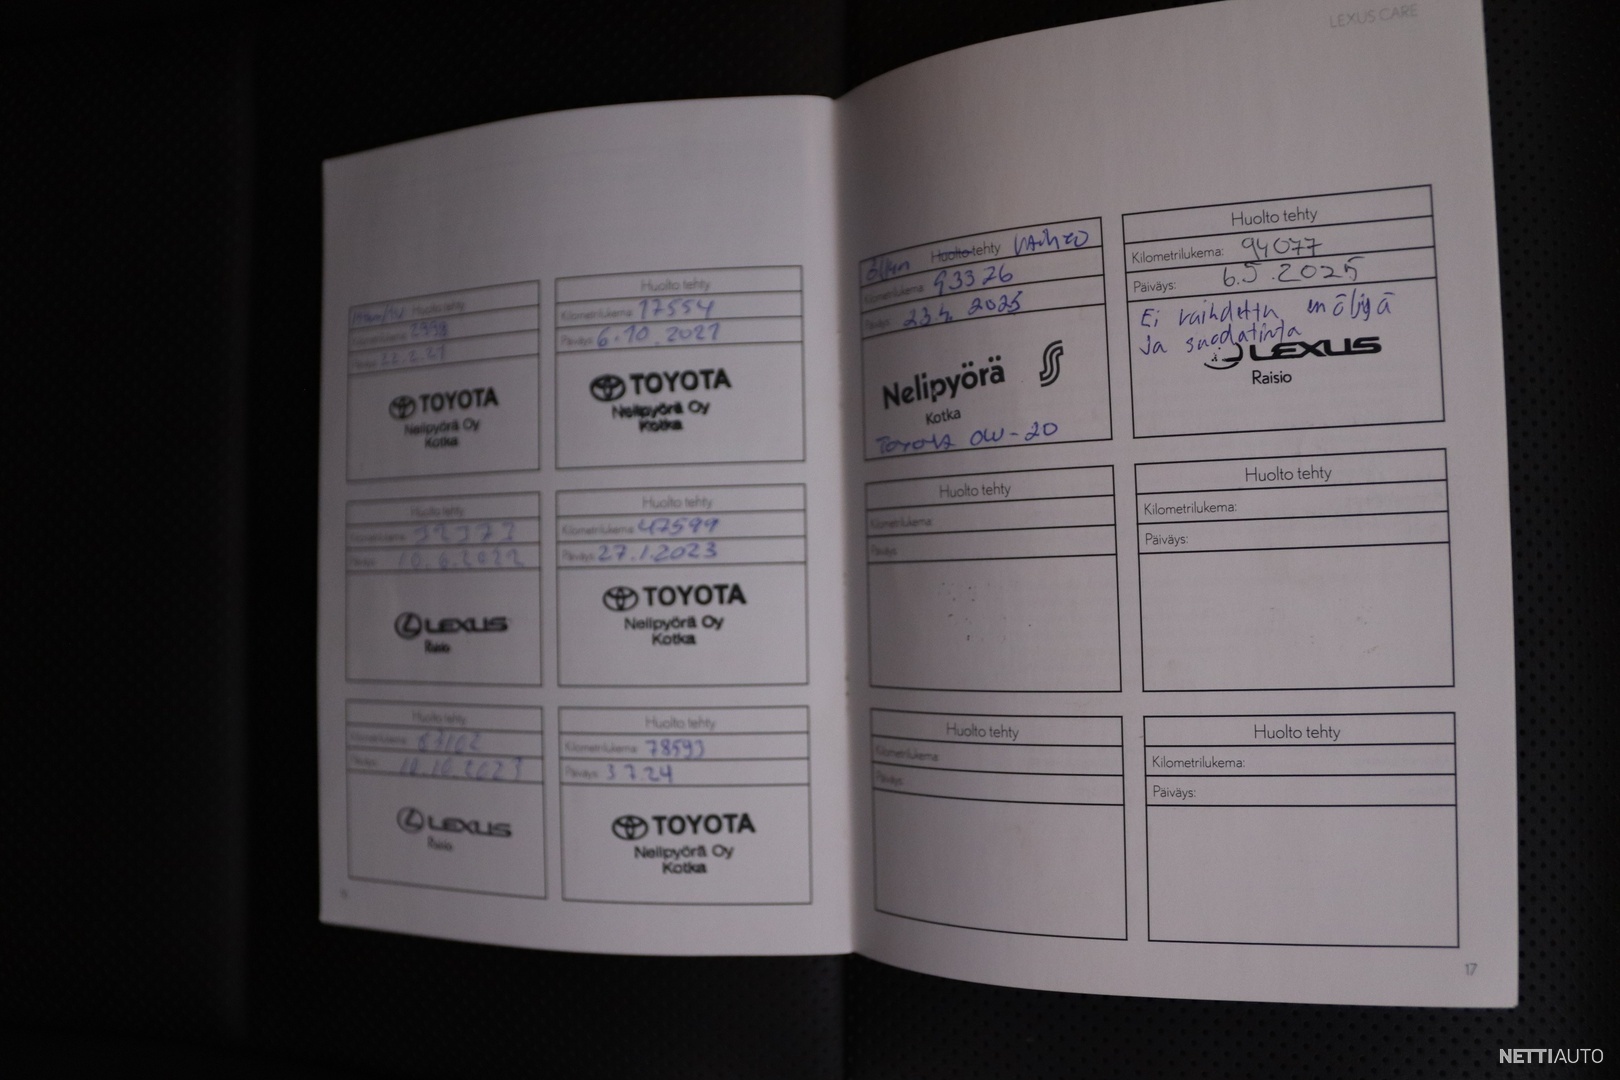 LEXUS CARE
Huolto tehty
Kilometrilukema: 2998
Päiväys: 22.2.21
TOYOTA
Nelipyörä Oy
Kotka
Huolto tehty
Kilometrilukema: 17554
Päiväys: 6.10.2021
TOYOTA
Nelipyörä Oy
Kotka
Huolto tehty
Kilometrilukema:
Päiväys: 10.6.2022
LEXUS
Raisio
Huolto tehty
Kilometrilukema: 47599
Päiväys: 27.1.2023
TOYOTA
Nelipyörä Oy
Kotka
Huolto tehty
Kilometrilukema:
Päiväys:
LEXUS
Raisio
Huolto tehty
Kilometrilukema: 78593
Päiväys: 3.7.24
TOYOTA
Nelipyörä Oy
Kotka
Öljyn Huolto tehty vaihto
Kilometrilukema: 93326
Päiväys: 23.4.2025
Nelipyörä
Kotka
Toyota 0W-20
Huolto tehty
Kilometrilukema: 94077
Päiväys: 6.5.2025
Ei vaihdettu en öljyä
ja suodatinta
LEXUS
Raisio
Huolto tehty
Kilometrilukema:
Päiväys:
Huolto tehty
Kilometrilukema:
Päiväys:
Huolto tehty
Kilometrilukema:
Päiväys:
Huolto tehty
Kilometrilukema:
Päiväys:
17
NETTIAUTO